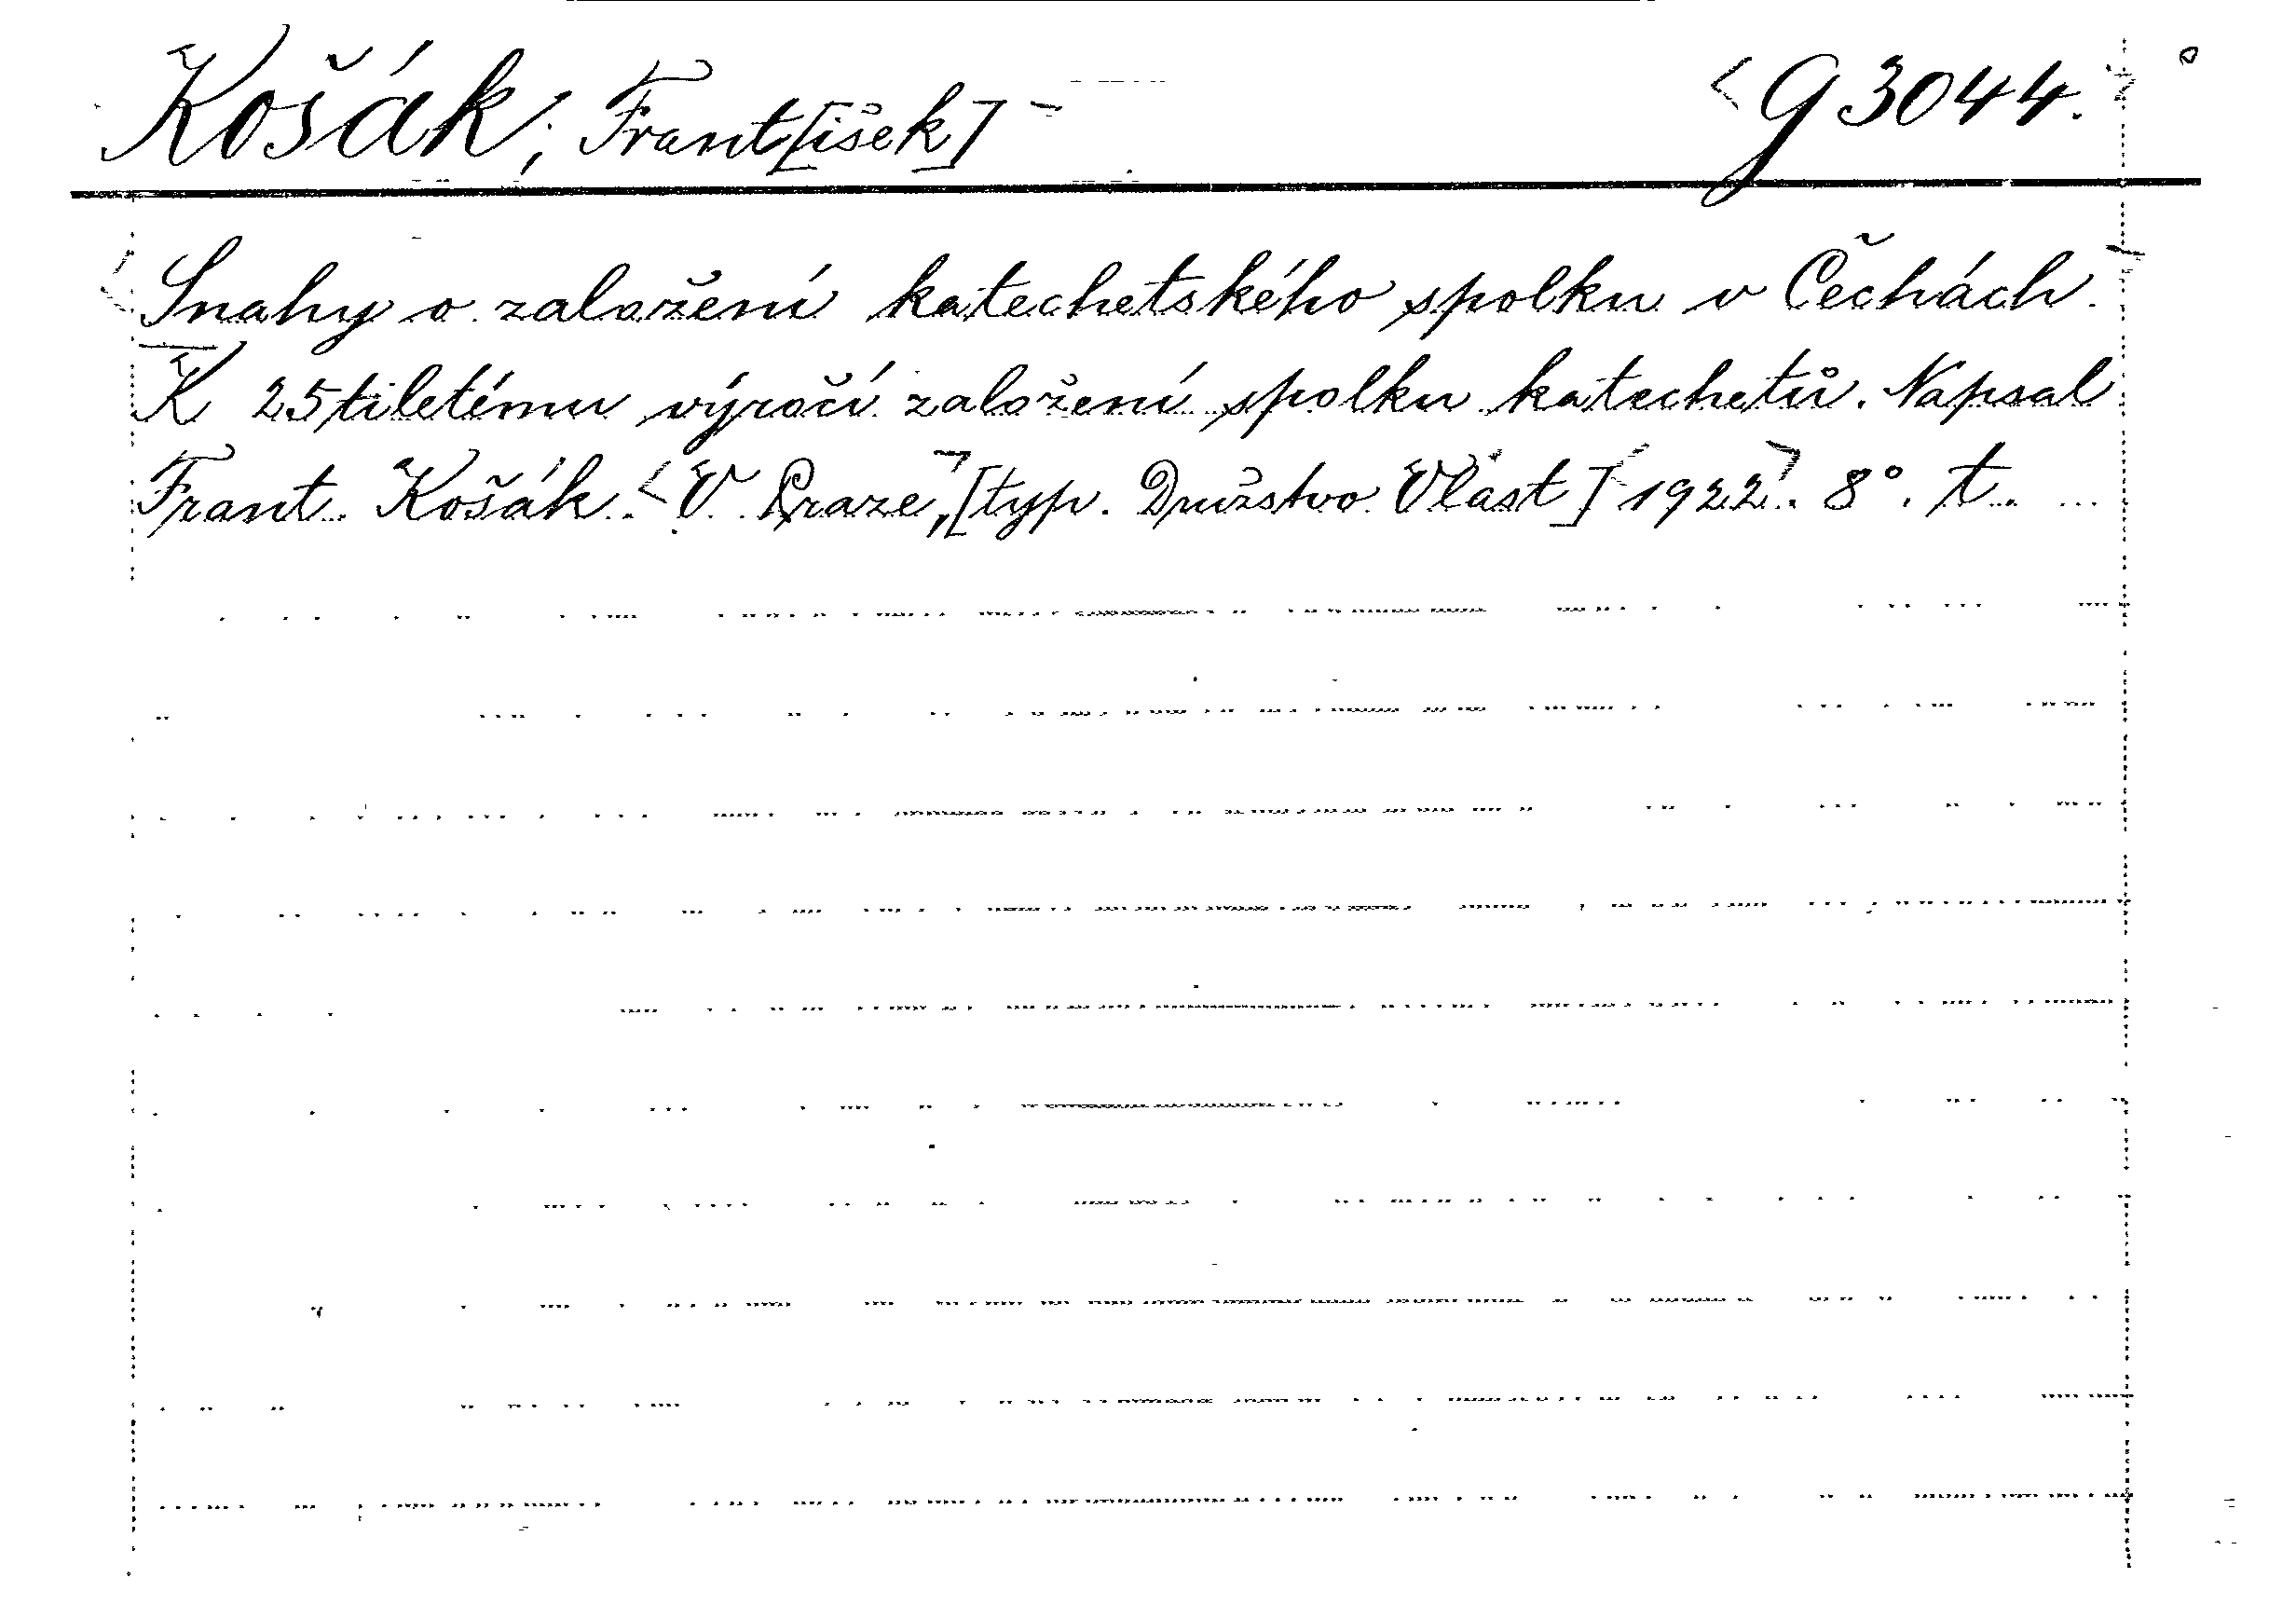 Košák, Frant[išek] G 3044.
Snahy o založení katechetského spolku v Čechách.
K 25tiletému výročí založení spolku katechetů. Napsal
Frant. Košák. V Praze, [typ. Družstvo Vlast] 1922. 8°. t.